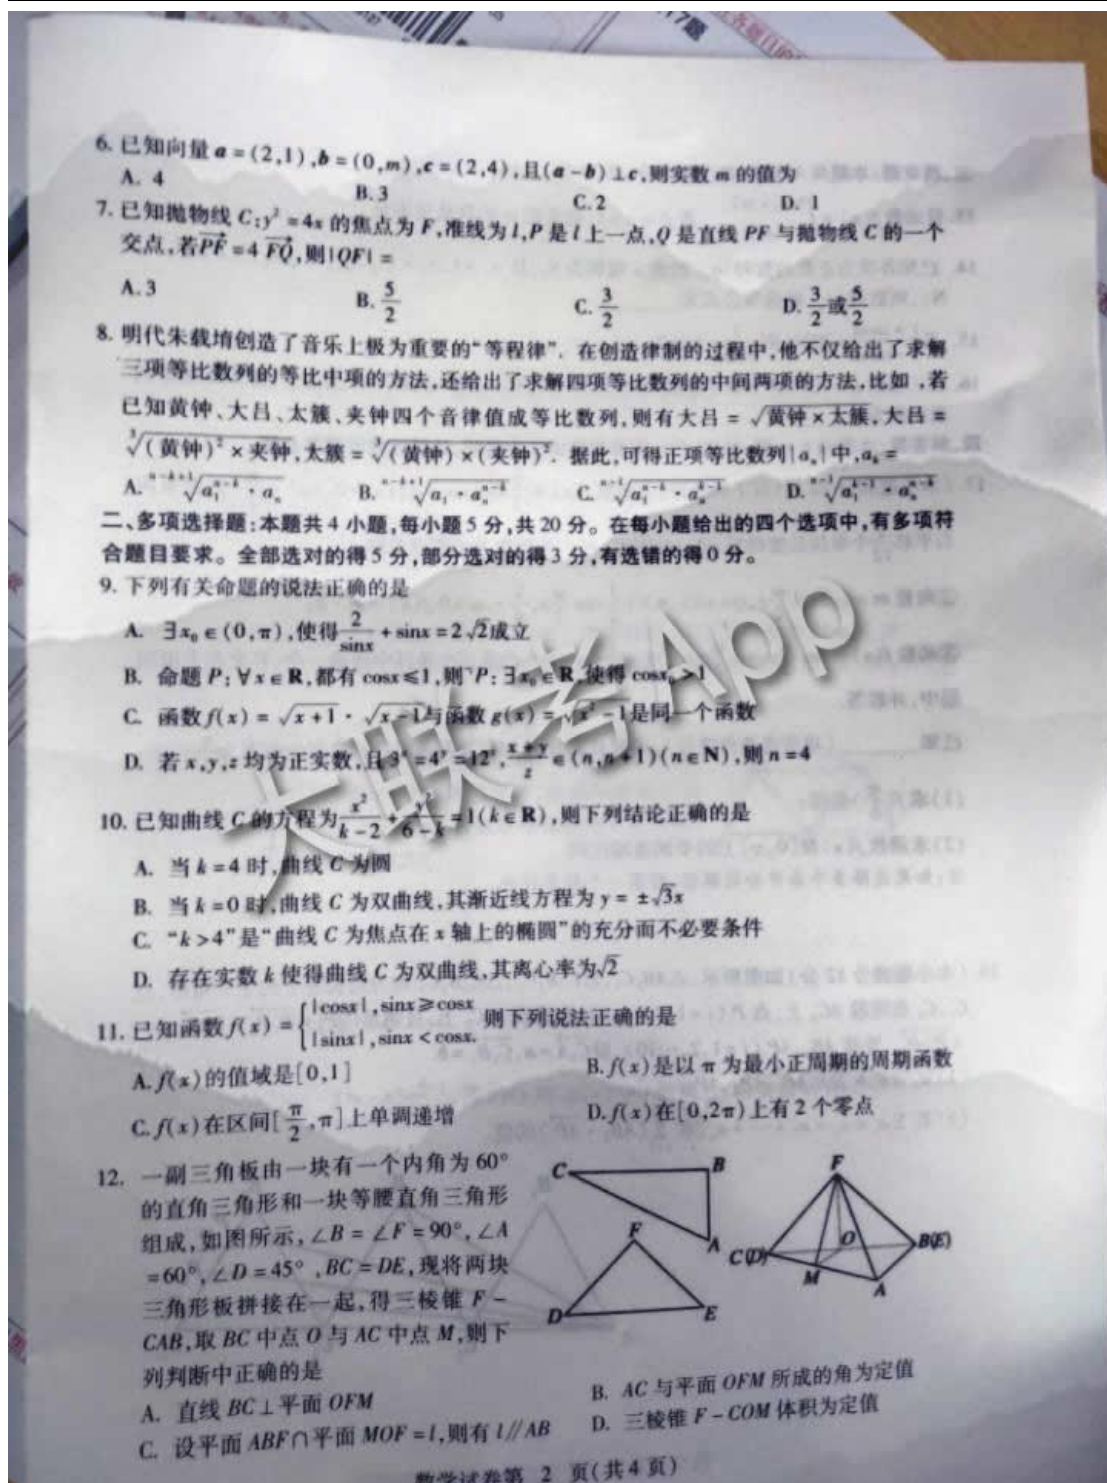 17题
6. 已知向量 a = (2,1), b = (0,m), c = (2,4), 且(a - b)⊥c, 则实数 m 的值为
A. 4 B. 3 C. 2 D. 1
7. 已知抛物线 C: y² = 4x 的焦点为 F, 准线为 l, P 是 l 上一点, Q 是直线 PF 与抛物线 C 的一个
交点, 若PF→ = 4 FQ→, 则|QF| =
A. 3 B. 5/2 C. 3/2 D. 3/2或5/2
8. 明代朱载堉创造了音乐上极为重要的“等程律”. 在创造律制的过程中, 他不仅给出了求解
三项等比数列的等比中项的方法, 还给出了求解四项等比数列的中间两项的方法, 比如, 若
已知黄钟、大吕、太簇、夹钟四个音律值成等比数列, 则有大吕 = √(黄钟 × 太簇), 大吕 =
∛((黄钟)² × 夹钟), 太簇 = ∛((黄钟) × (夹钟)²). 据此, 可得正项等比数列{aₙ}中, aₖ =
A. ⁿ⁻ᵏ⁺¹√(a₁ⁿ⁻ᵏ · aₙ) B. ⁿ⁻ᵏ⁺¹√(a₁ · aₙⁿ⁻ᵏ) C. ⁿ⁻¹√(a₁ⁿ⁻ᵏ · aₙᵏ⁻¹) D. ⁿ⁻¹√(a₁ᵏ⁻¹ · aₙⁿ⁻ᵏ)
二、多项选择题: 本题共 4 小题, 每小题 5 分, 共 20 分。在每小题给出的四个选项中, 有多项符
合题目要求。全部选对的得 5 分, 部分选对的得 3 分, 有选错的得 0 分。
9. 下列有关命题的说法正确的是
A. ∃x₀∈(0,π), 使得 2/sinx + sinx = 2√2成立
B. 命题 P: ∀x∈R, 都有 cosx≤1, 则¬P: ∃x₀∈R, 使得 cosx₀>1
C. 函数 f(x) = √(x+1) · √(x-1)与函数 g(x) = √(x²-1)是同一个函数
D. 若 x,y,z 均为正实数, 且 3ˣ = 4ʸ = 12ᶻ, (x+y)/z ∈(n,n+1)(n∈N), 则 n = 4
10. 已知曲线 C 的方程为 x²/(k-2) + y²/(6-k) = 1(k∈R), 则下列结论正确的是
A. 当 k = 4 时, 曲线 C 为圆
B. 当 k = 0 时, 曲线 C 为双曲线, 其渐近线方程为 y = ±√3x
C. “k>4”是“曲线 C 为焦点在 x 轴上的椭圆”的充分而不必要条件
D. 存在实数 k 使得曲线 C 为双曲线, 其离心率为√2
11. 已知函数 f(x) = { |cosx|, sinx≥cosx
|sinx|, sinx<cosx. 则下列说法正确的是
A. f(x)的值域是[0,1] B. f(x)是以 π 为最小正周期的周期函数
C. f(x)在区间[π/2,π]上单调递增 D. f(x)在[0,2π)上有 2 个零点
12. 一副三角板由一块有一个内角为 60°
的直角三角形和一块等腰直角三角形
组成, 如图所示, ∠B = ∠F = 90°, ∠A
= 60°, ∠D = 45°, BC = DE, 现将两块
三角形板拼接在一起, 得三棱锥 F -
CAB, 取 BC 中点 O 与 AC 中点 M, 则下
列判断中正确的是
C B A F D E
F C(D) O B(E) M A
A. 直线 BC⊥平面 OFM B. AC 与平面 OFM 所成的角为定值
C. 设平面 ABF∩平面 MOF = l, 则有 l∥AB D. 三棱锥 F - COM 体积为定值
数学试卷第 2 页(共 4 页)
大联考App